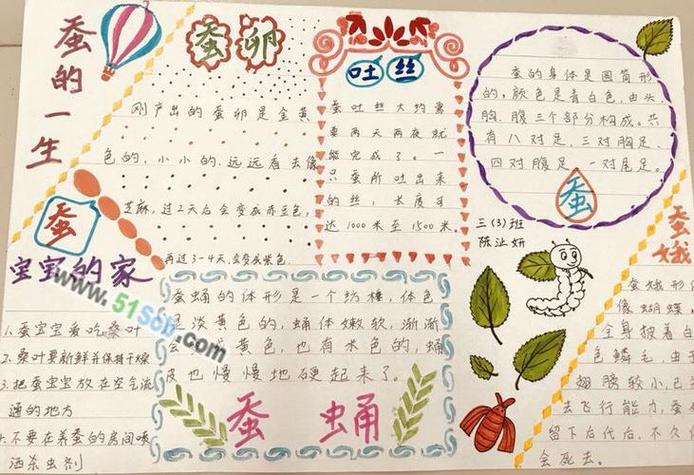 蚕的一生
蚕卵
刚产出的蚕卵是金黄
色的,小小的.远远看去像
芝麻,过2天后会变成赤豆色,
再过3-4天,会变成紫色.
吐丝
蚕吐丝大约需
要两天两夜就
能完成了。一
只蚕所吐出来
的丝,长度可
达1000米至1500米。
蚕的身体是圆筒形
的,颜色是青白色,由头、
胸、腹三个部分构成。共
有八对足,三对胸足、
四对腹足、一对尾足。
蚕
三(3)班
陈让妍
蚕
宝宝的家
1.蚕宝宝爱吃桑叶
2.桑叶要新鲜并保持干燥
3.把蚕宝宝放在空气流
通的地方
4.不要在养蚕的房间喷
洒杀虫剂
蚕蛹的体形是一个纺棰,体色
是淡黄色的,蛹体嫩软,渐渐
会变黄色,也有米色的,蛹
皮也慢慢地硬起来了。
蚕 蛹
蚕蛾
蚕蛾形
像蝴蝶
全身披着白
色鳞毛,由
翅膀较小,已
去飞行能力,蚕
留下后代后,不久
会死去。
www.51Sob.com